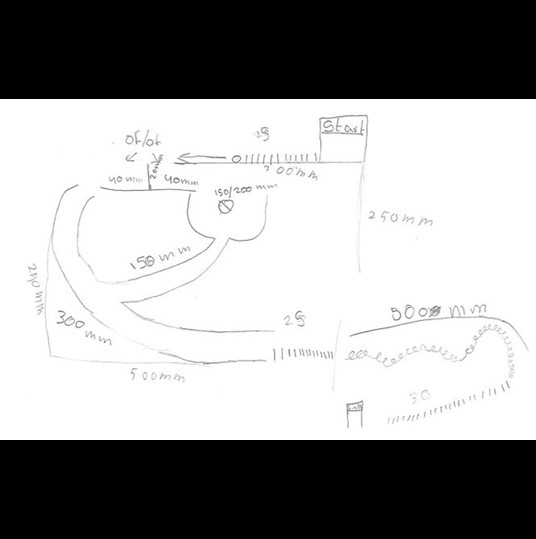 Start
25
200mm
20mm
40mm
40mm
150/200 mm
250mm
150mm
300mm
25
500mm
500 mm
30